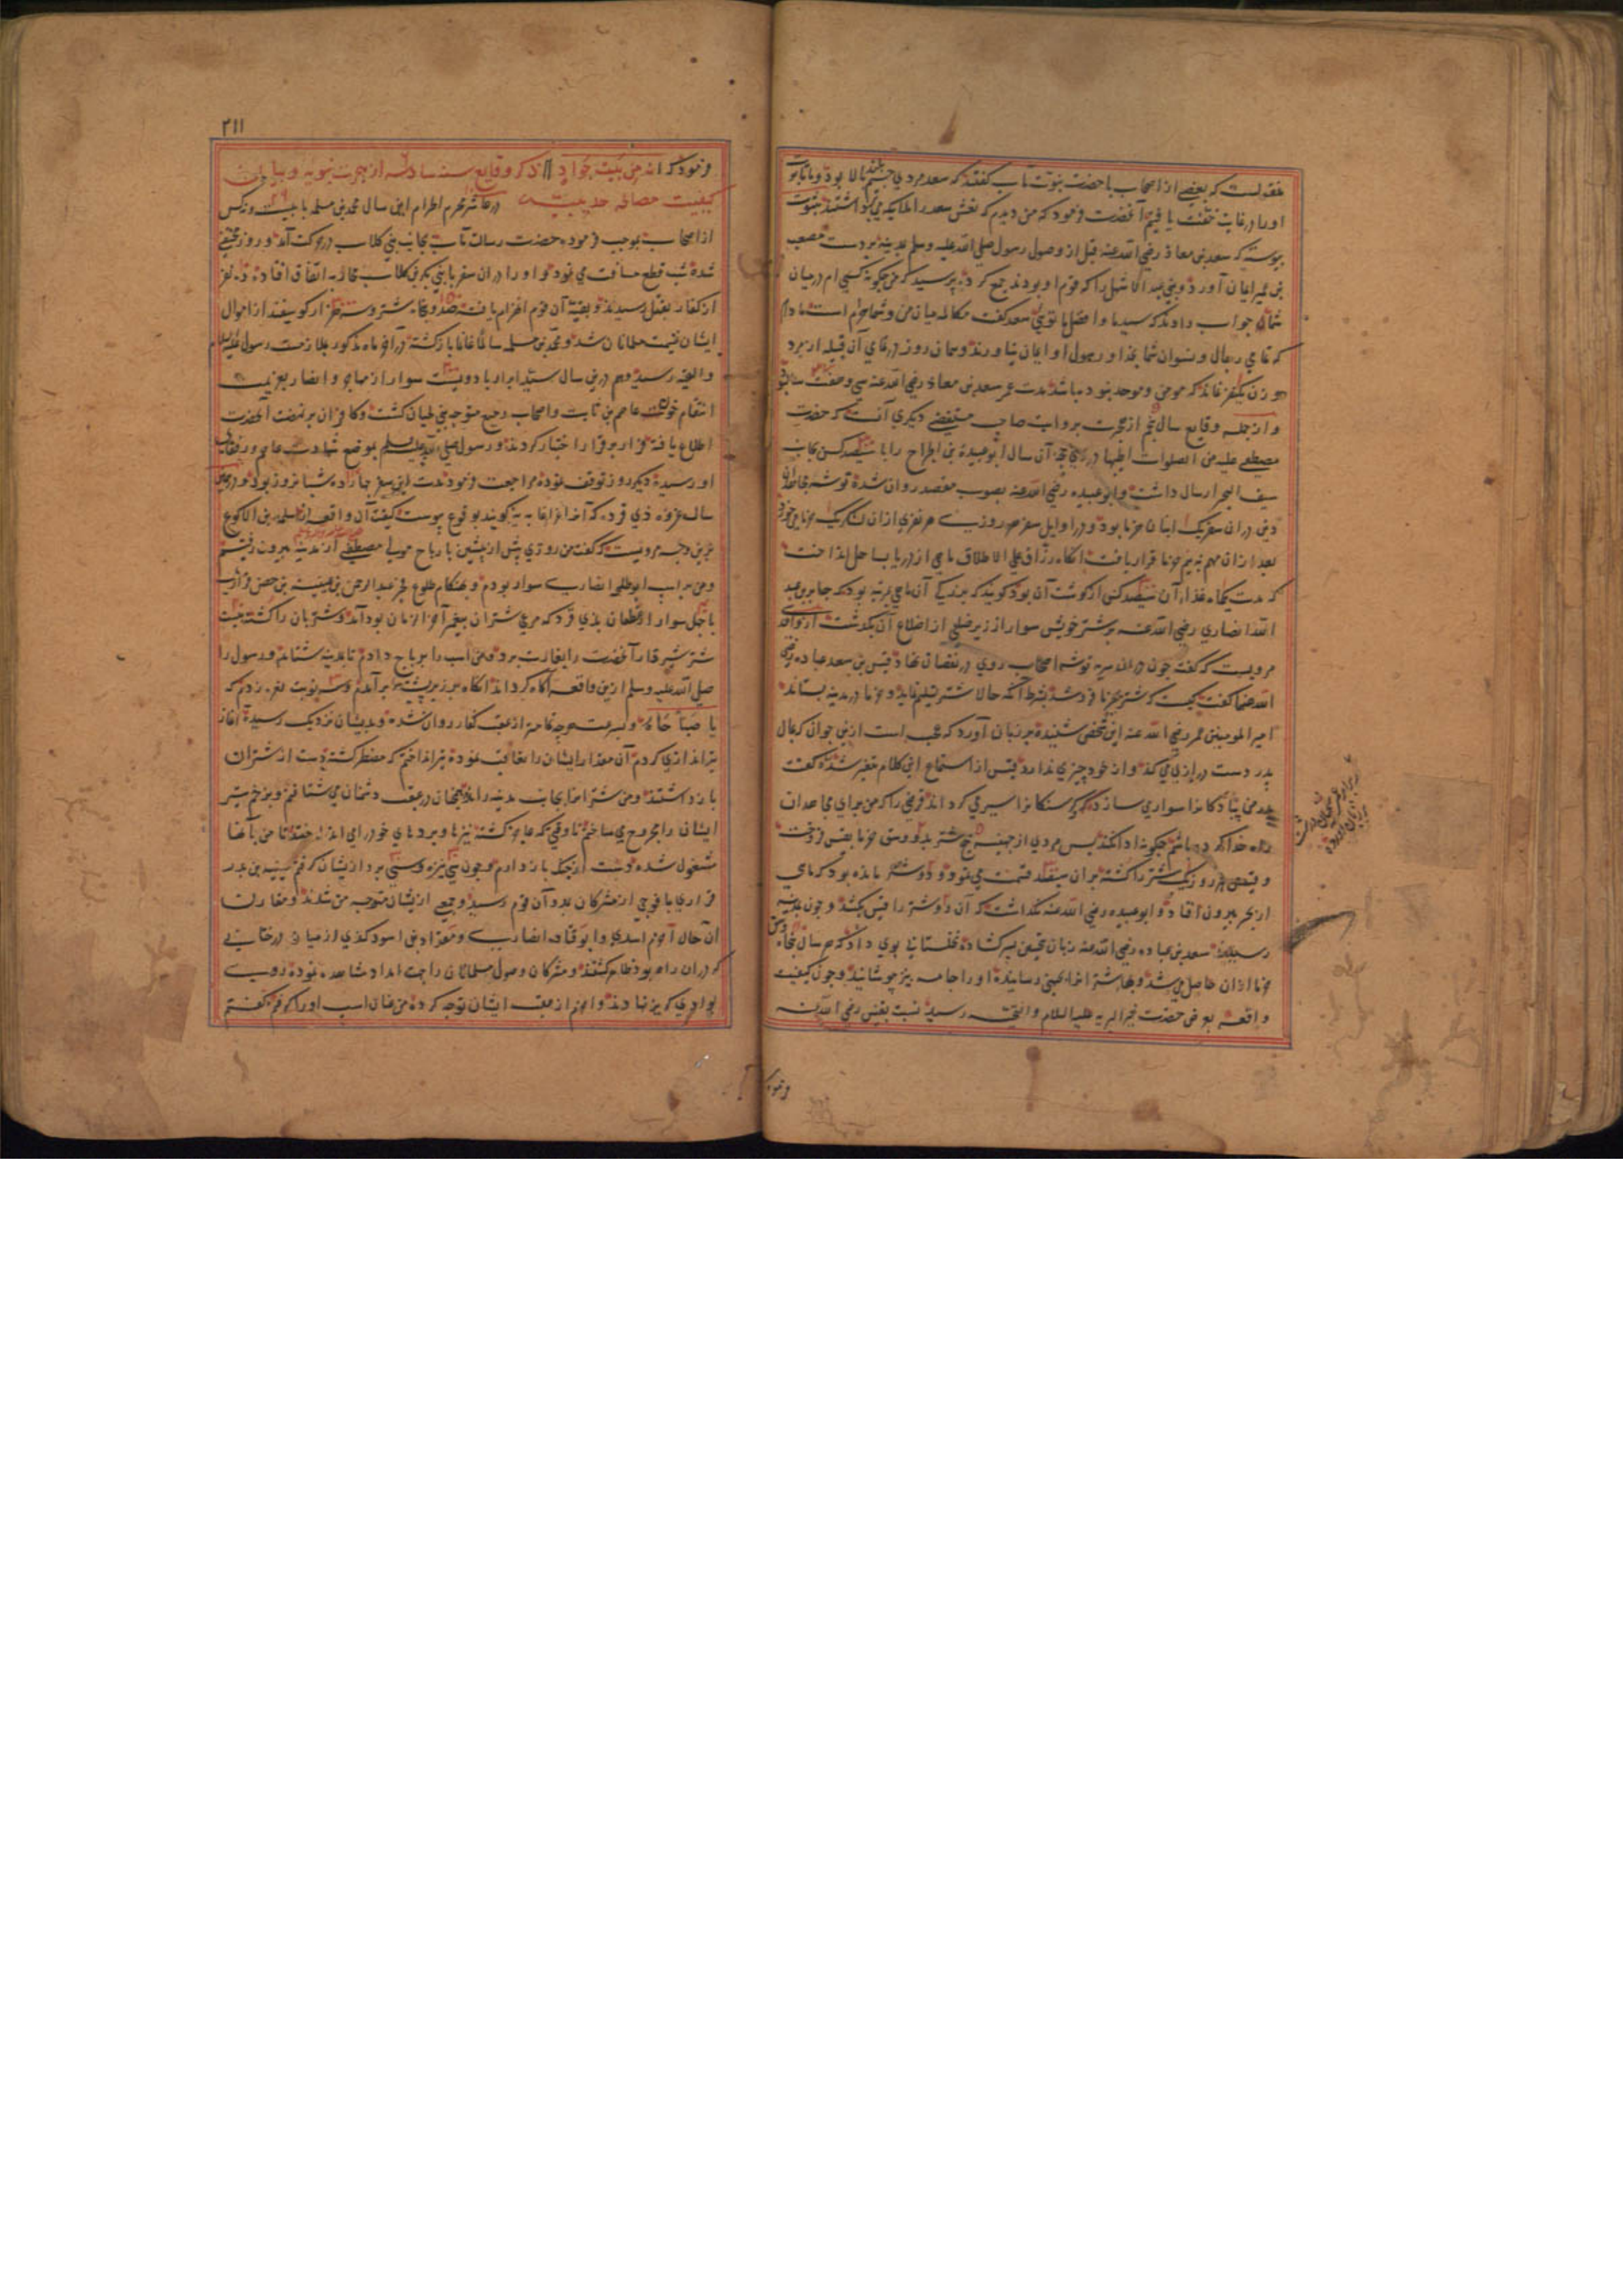 منقولست که بعضی از اصحاب با حضرت نبوت مآب گفتند که سعد مردی جسیم بالا بود و ما تابوت
او را در غایت خفت یافتیم آنحضرت فرمود که من دیدم که نعش سعد را ملایکه می برداشتند بثبوت
پیوسته که سعد بن معاذ رضی الله عنه قبل از وصول رسول صلی الله علیه وسلم بمدینه بر دست مصعب
بن عمیر ایمان آورد و بنی عبد الاشهل را که قوم او بودند جمع کرده پرسید که من چگونه کسی ام در میان
شما جواب دادند که سید ما و افضل ما تویی سعد گفت مکالمه میان من و شما حرام است مادام
که تمامی رجال و نسوان شما بخدا و رسول او ایمان نیاورند و همان روز در تمامی آن قبیله از مرد
و زن یکنفر نماند که مومن و موحد نبوده باشد مدت عمر سعد بن معاذ رضی الله عنه سی و هفت سال بود
و از جمله وقایع سال پنجم از هجرت بروایت صاحب مستقصی دیگری آنست که حضرت
مصطفی علیه من الصلوات در ذی حجه آن سال ابو عبیدة بن الجراح را با سیصد کس بجانب
سیف البحر ارسال داشت و ابو عبیده رضی الله عنه بصوب مقصد روان شده توشه مجاهدان
دین در آن سفر یک انبان خرما بود و در اوایل سفر هر روز هر نفری از آن لشکر یک خرما می خورد
بعد از آن مهم به نیم خرما قرار یافت آنگاه رزاق علی الاطلاق ماهی از دریا بساحل انداخت
که مدت یکماه غذاء آن سیصد کس از گوشت آن بود گویند که بزرگی آن ماهی بمرتبه بود که جابر بن عبد
الله انصاری رضی الله عنه بر شتر خویش سوار از زیر ضلعی از اضلاع آن بگذشت از واقدی
مرویست که گفت چون در آن سریه توشه اصحاب روی در نقصان نهاد قیس بن سعد عباده رضی
الله عنهما گفت کیست که شتر بخرما فروشد بشرط آنکه حالا شتر تسلیم نماید و خرما در مدینه بستاند
امیر المومنین عمر رضی الله عنه این سخن شنیده بر زبان آورد که عجب است ازین جوان که بمال
پدر دست درازی می کند و از خود چیزی ندارد قیس از استماع این کلام متغیر شده گفت
پدر من پیادگان را سواری سازد و گرسنگان را سیر می گرداند قرضی را که من برای مجاهدان
راه خدا کرده باشم چگونه ادا نکند پس مردی از جهینه پنج شتر بدو وسق خرما بقیس فروخت
و قیس هر روز یک شتر را کشته بر آن سیصد قسمت می نمود و دو شتر مانده بود که ماهی
از بحر بیرون افتاد و ابو عبیده رضی الله عنه نگذاشت که آن دو شتر را قیس بکشد و چون بمدینه
رسیدند سعد بن عباده رضی الله عنه زبان بتحسین پسر گشاده نخلستانی بوی داد که هر سال پنجاه وسق
خرما از آن حاصل می شد و بهاء شتر اعرابی جهینی رسانیده او را جامه نیز پوشانید و چون کیفیت
واقعه بعرض حضرت خیر البریه علیه السلام والتحیه رسید نسبت بقیس رضی الله عنه
فرمود
۲۱۱
فرمود که انه من بیت جواد ذکر وقایع سنه سادسه از هجرت نبویه و بیان
کیفیت مصالحه حدیبیه در عاشر محرم الحرام این سال محمد بن مسلمه با بیست و نه کس
از اصحاب بموجب فرموده حضرت رسالت مآب بجانب بنی کلاب در حرکت آمد و روز مختفی
شده شب قطع مسافت می نمود و او را در آن سفر با بنی بکر بن کلاب محاربه اتفاق افتاده ده نفر
از کفار بقتل رسیدند و بقیه آن قوم انهزام یافته صد و پنجاه شتر و سه هزار گوسفند از اموال
ایشان غنیمت مسلمانان شد و محمد بن مسلمه سالما غانما بازگشته در آخر ماه مذکور بملازمت رسول علیه السلام
والتحیه رسید و هم درین سال سید ابرار با دویست سوار از مهاجر و انصار بعزیمت
انتقام خون عاصم بن ثابت و اصحاب رجیع متوجه بنی لحیان گشت و کافران بر نهضت آنحضرت
اطلاع یافته فرار بر قرار اختیار کردند و رسول صلی الله علیه وسلم بموضع شهادت عاصم و رفقای
او رسیده یکدو روز توقف نموده مراجعت فرمود مدت این سفر چهارده شبانروز بود و درین
سال غزوه ذی قرد که آنرا غزا غابه نیز گویند بوقوع پیوست کیفیت آن واقعه از سلمه بن الاکوع
برین وجه مرویست که گفت من روزی پیش از پیشین با رباح مولی مصطفی از مدینه بیرون رفتیم
و من بر اسب ابو طلحه انصاری سوار بودم و هنگام طلوع فجر عبد الرحمن بن عیینه بن حصن فزاری
با چهل سوار از غطفان بذی قرد که مرعی شتران پیغمبر آخر الزمان بود آمد و شتربان را کشته بیست
شتر شیردار آنحضرت را بغارت برد و من اسب را برباح دادم تا بمدینه شتابد و رسول را
صلی الله علیه وسلم ازین واقعه آگاه گرداند آنگاه بر زبر پشته برآمدم و سه نوبت نعره زدم که
یا صباحاه و بسرعت هرچه تمامتر از عقب کفار روان شده و بدیشان نزدیک رسیده آغاز
تیر اندازی کردم آن مقدار ایشان را تعاقب نموده تیر انداختم که مضطر گشته دست از شتران
بازداشتند و من شتران را بجانب مدینه رانده همچنان در عقب دشمنان می شتافتم و بزخم تیر
ایشان را مجروح می ساختم تا وقتی که عاجز گشته نیزها و بردهای خود را می انداختند تا من بآنها
مشغول شده دست از جنگ بازدارم و چون سی نیزه و سی برد از ایشان گرفتم عیینه بن بدر
فزاری با فوجی از مشرکان بمدد آن قوم رسید و جمعی از یشان متوجه من شدند و مقارن
آن حال اخرم اسدی و ابو قتاده انصاری و مقداد بن اسود کندی از میان درختانی
که در آن راه بود ظاهر گشتند و مشرکان وصول مسلمانان را جهت امداد مشاهده نموده روی
بوادی گریز نهادند و اخرم از عقب ایشان توجه کرده من عنان اسب او را گرفتم و گفتم